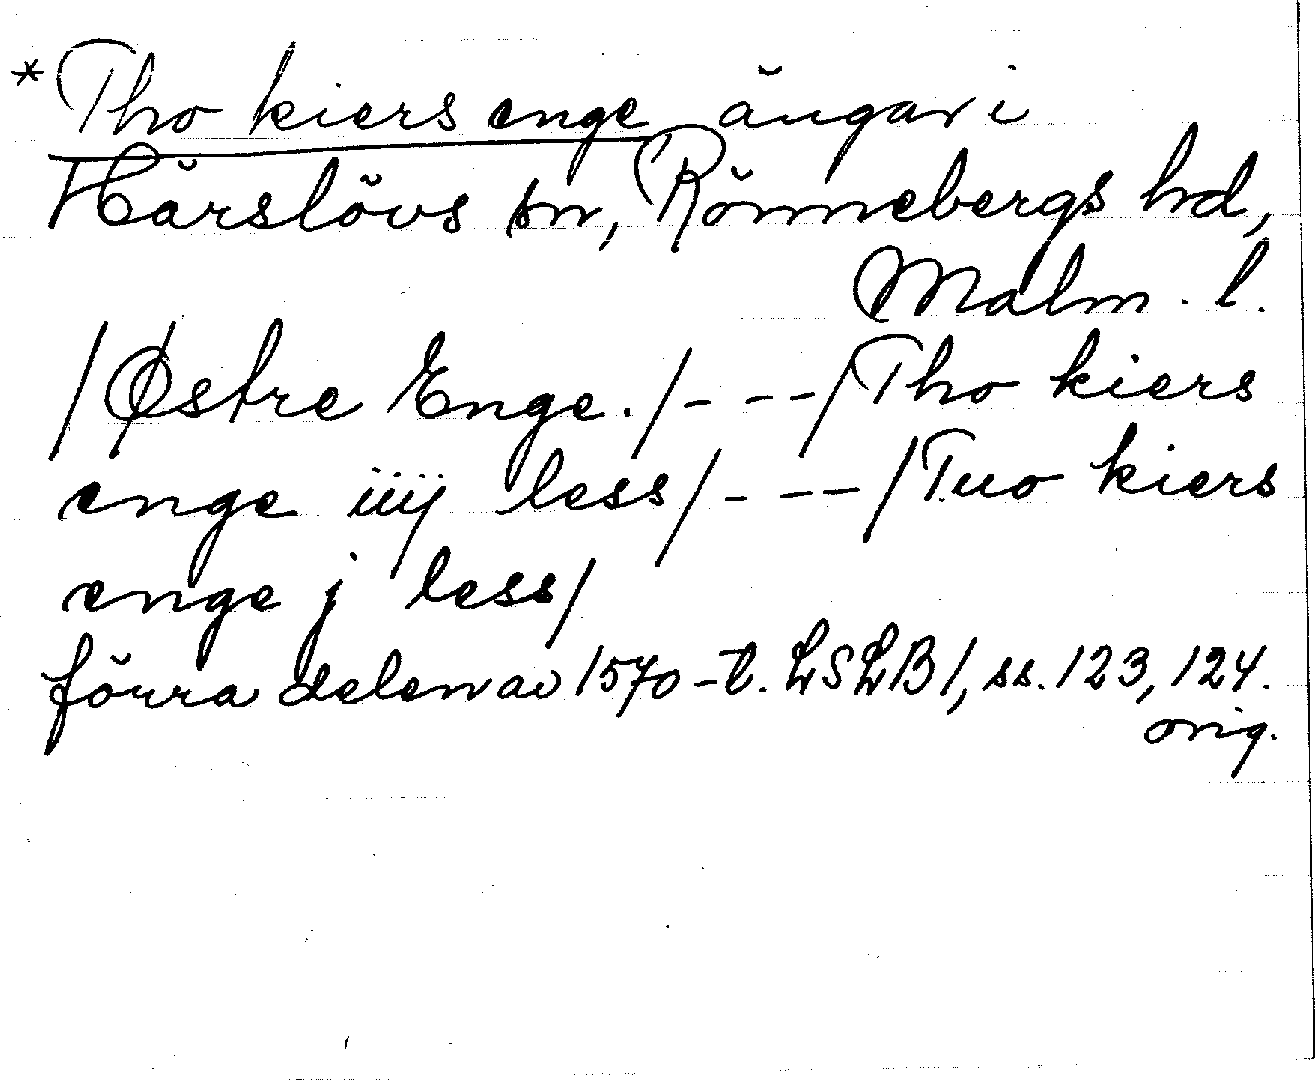 *Tho kiers enge ängar i
Härslövs sn, Rönnebergs hd,
Malm. l.
/Østre Enge./- - - -/Tho kiers
enge iiij less/- - - -/Tuo kiers
enge j less/
förra delen av 1570-t. LSLB1, ss. 123, 124.
orig.